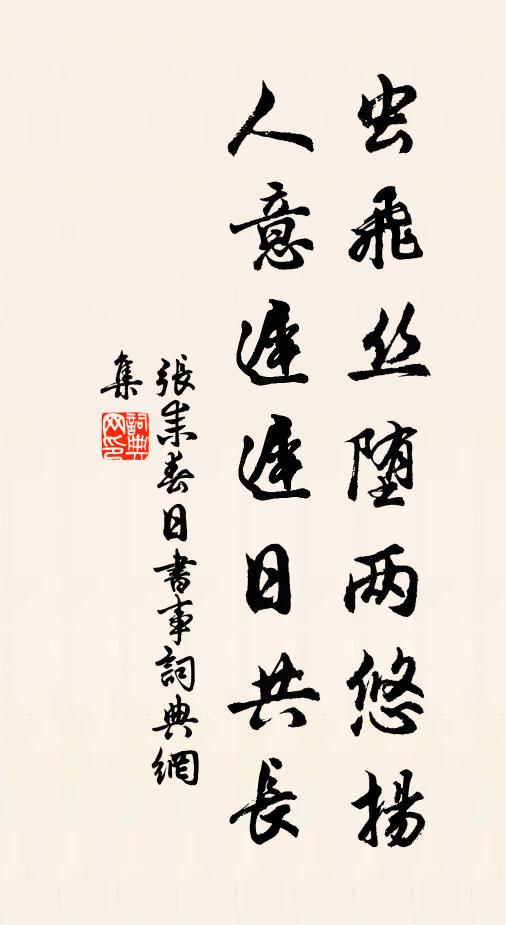 虫飛丝堕两悠揚
人意遅遅日共長
張耒春日書事詞典網
集
詞典
网印